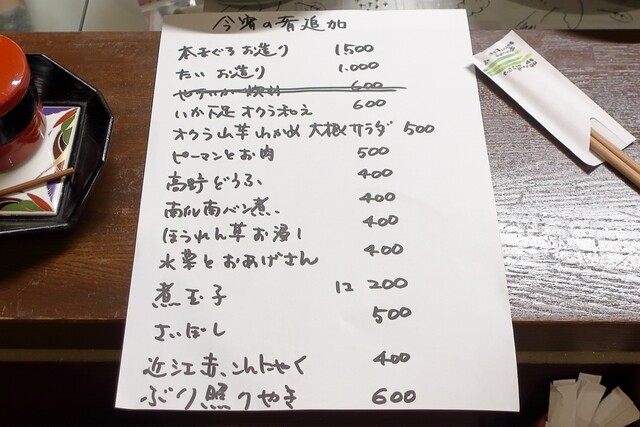 今宵の肴追加
本まぐろ お造り 1500
たい お造り 1.000
やすいか 600
いか下足 オクラ和え 600
オクラ山芋わかめ 大根サラダ 500
ピーマンとお肉 500
高野どうふ 400
南瓜南バン煮 400
ほうれん草お浸し 400
水菜とおあげさん 400
煮玉子 1コ 200
さいぼし 500
近江赤こんにゃく 400
ぶり照りやき 600